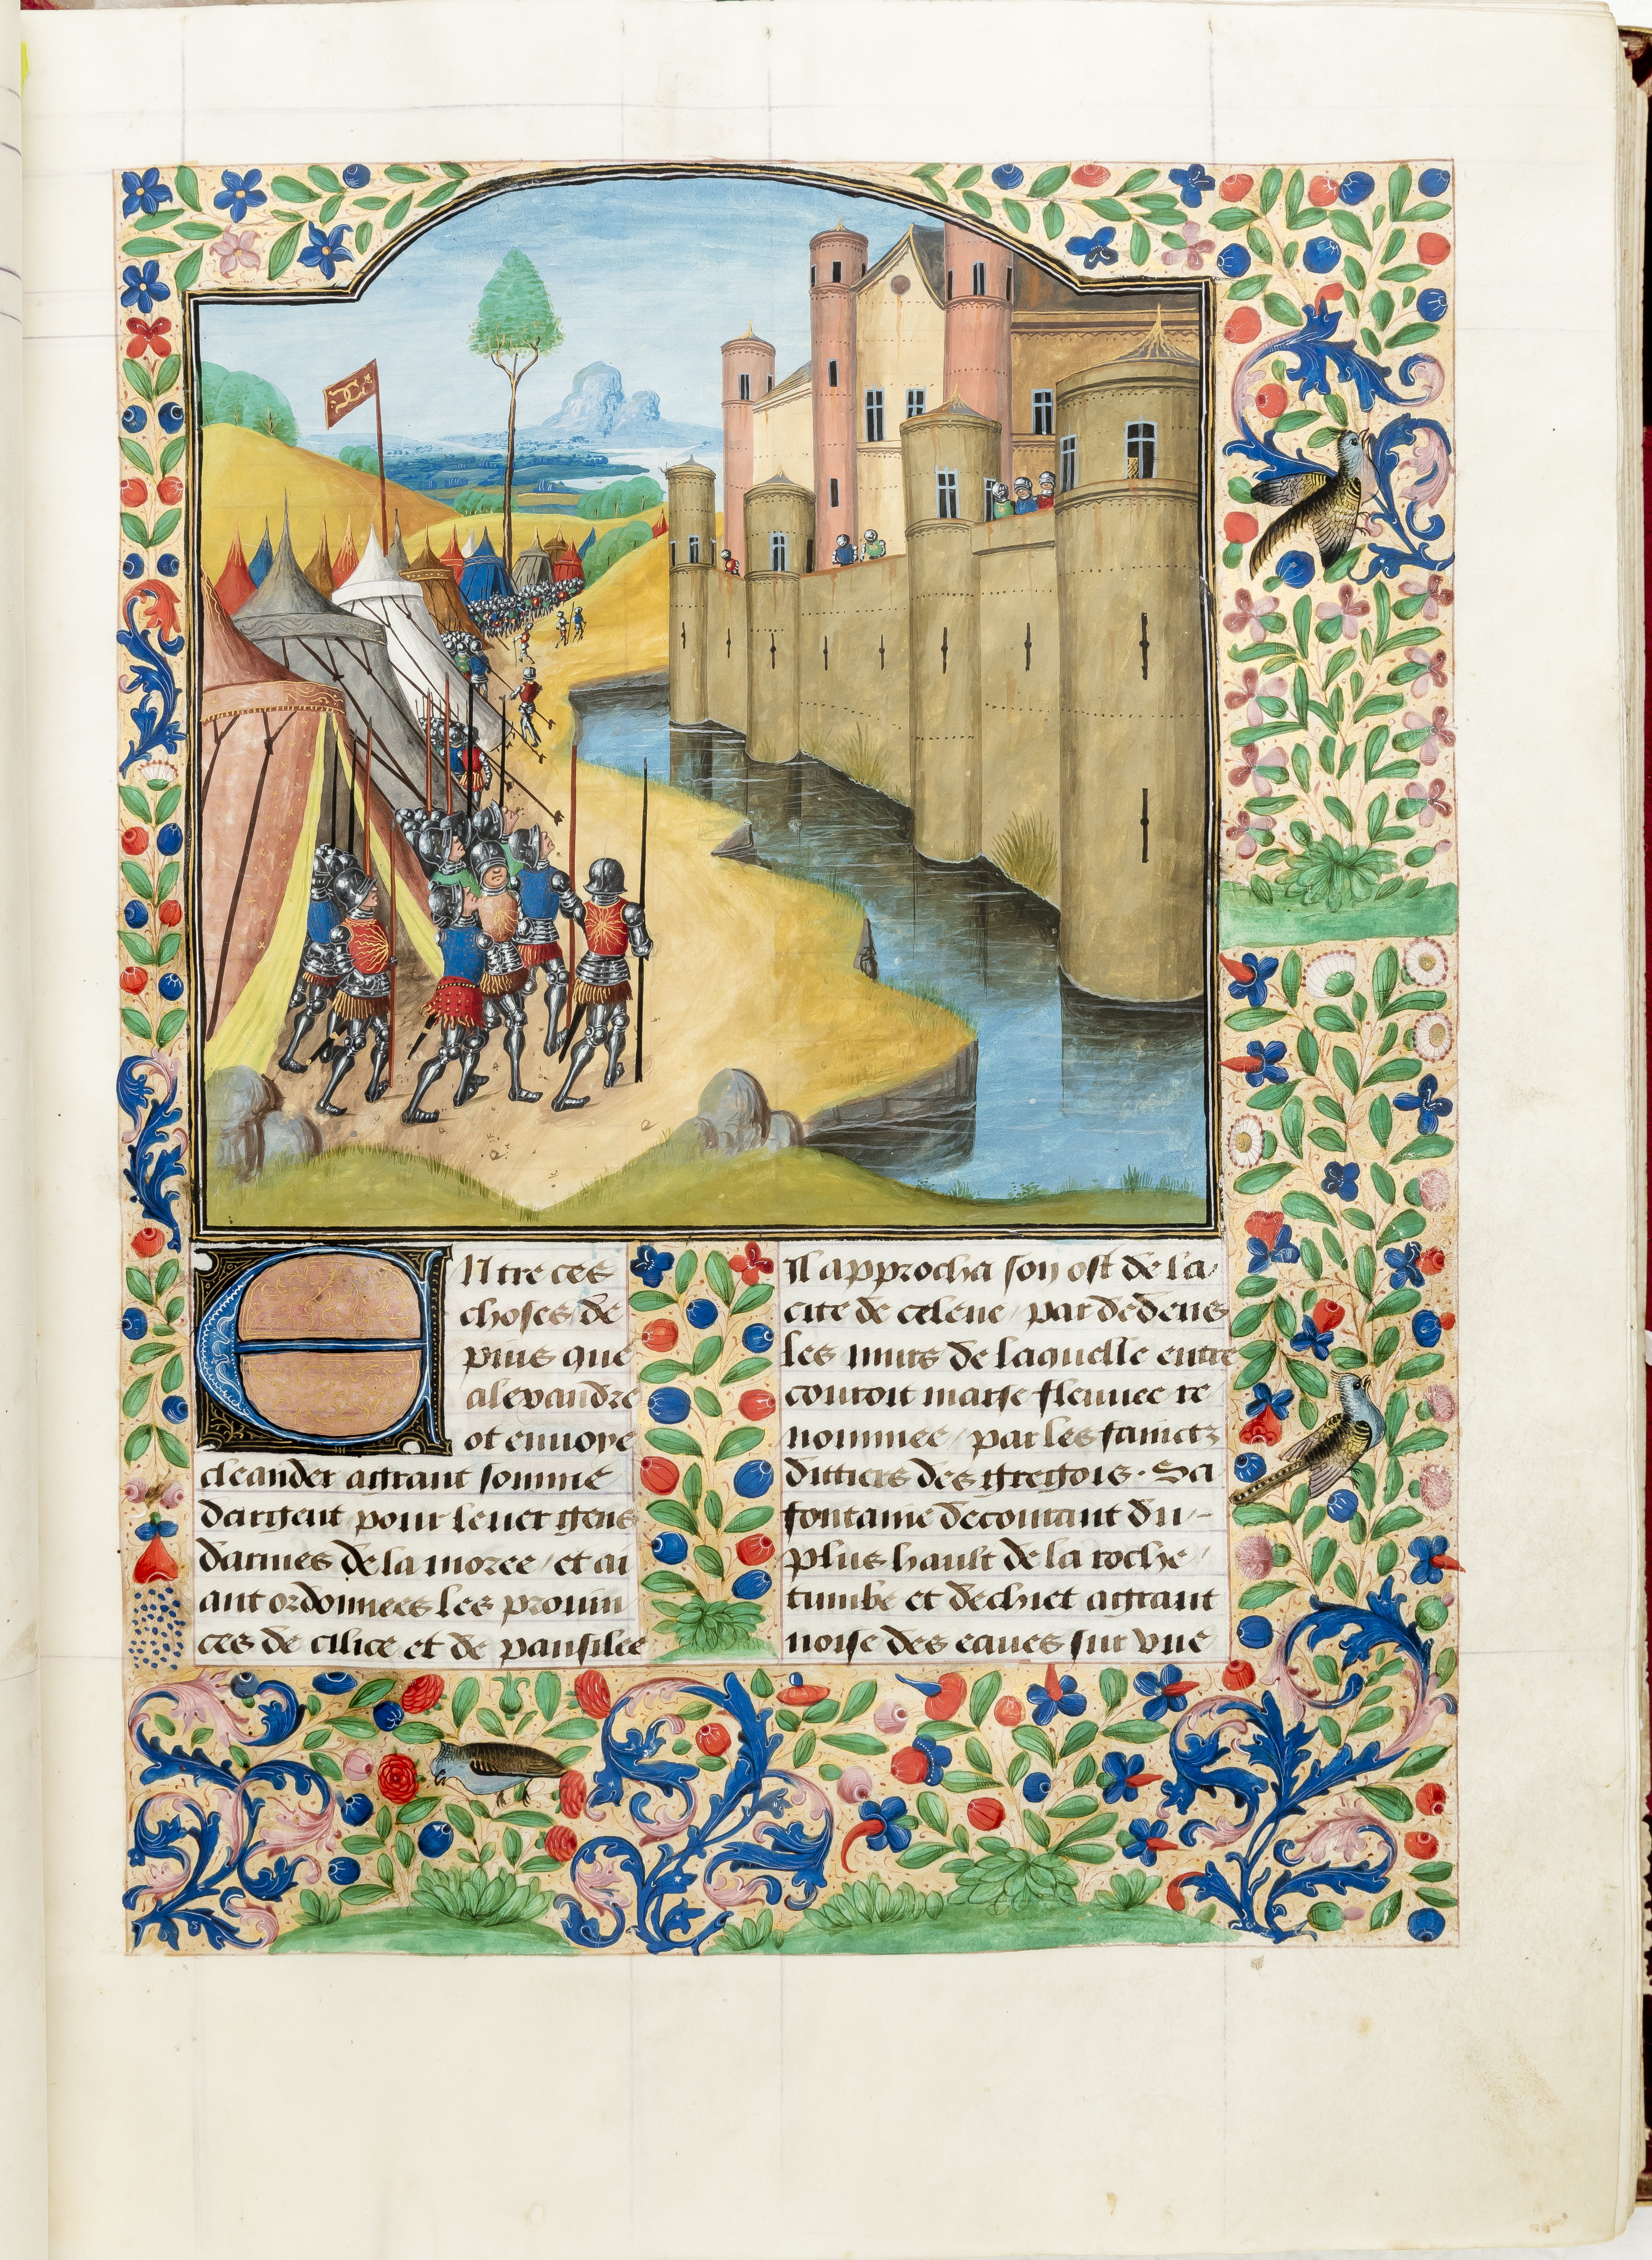 Entre ces
choses de
puis que
alexandre
ot enuoye
cleander a grant somme
dargent pour leuer gens
darmes de la moree / et ai
ant ordonnees les prouin
ces de cilice et de panfilee
Il approcha son ost de la /
cite de celene / par dedens
les murs de laquelle entre
couroit marse fleuuee re
nommee / par les fainctz
dittiers des gregois. Sa
fontaine decourant du -
plus hault de la roche /
tumbe et dechiet a grant
noise des eaues sur vne /